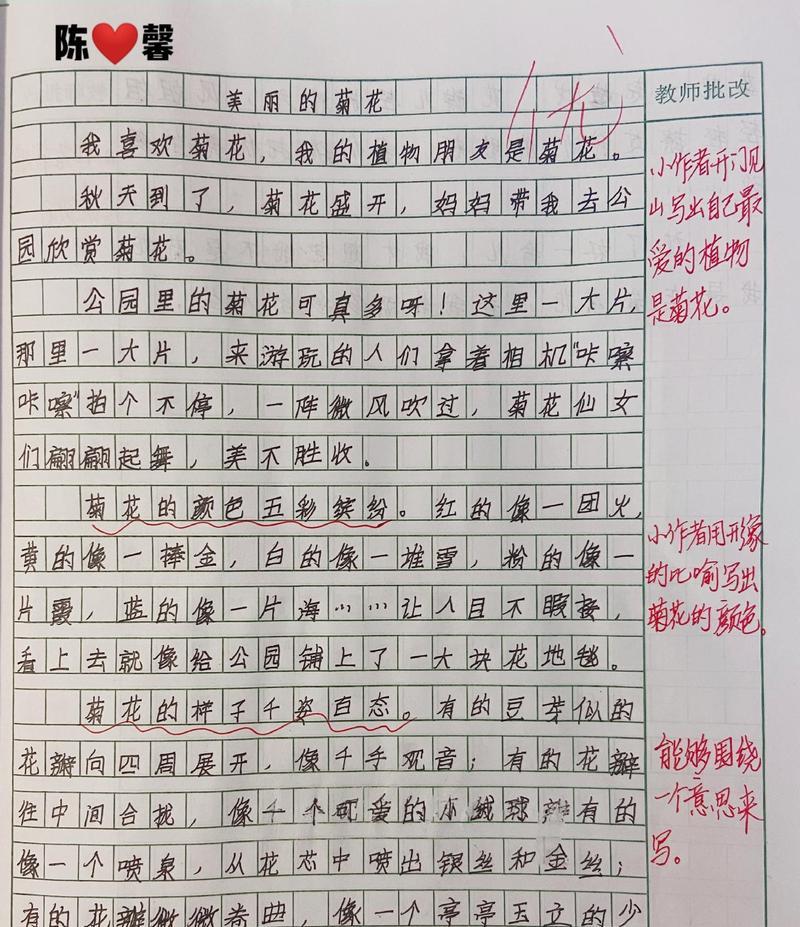 陈❤️馨
优
教师批改
美丽的菊花
我喜欢菊花，我的植物朋友是菊花。
秋天到了，菊花盛开，妈妈带我去公
园欣赏菊花。
公园里的菊花可真多呀！这里一大片，
那里一大片，来游玩的人们拿着相机"咔嚓
咔嚓"拍个不停，一阵微风吹过，菊花仙女
们翩翩起舞，美不胜收。
菊花的颜色五彩缤纷。红的像一团火，
黄的像一捧金，白的像一堆雪，粉的像一
片霞，蓝的像一片海……让人目不暇接，
看上去就像给公园铺上了一大块花地毯。
菊花的样子千姿百态。有的豆芽似的
花瓣向四周展开，像千手观音；有的花瓣
往中间合拢，像一个可爱的小绒球；有的
像一个喷泉，从花芯中喷出银丝和金丝；
有的花瓣微微卷曲，像一个亭亭玉立的少
小作者开门见
山写出自己最
爱的植物
是菊花。
小作者用形象
的比喻写出
菊花的颜色。
能够围绕
一个意思来
写。